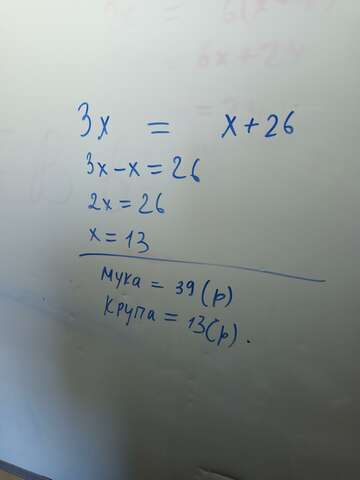 3x = x+26
3x-x=26
2x=26
x=13
мука = 39(р)
крупа = 13(р).